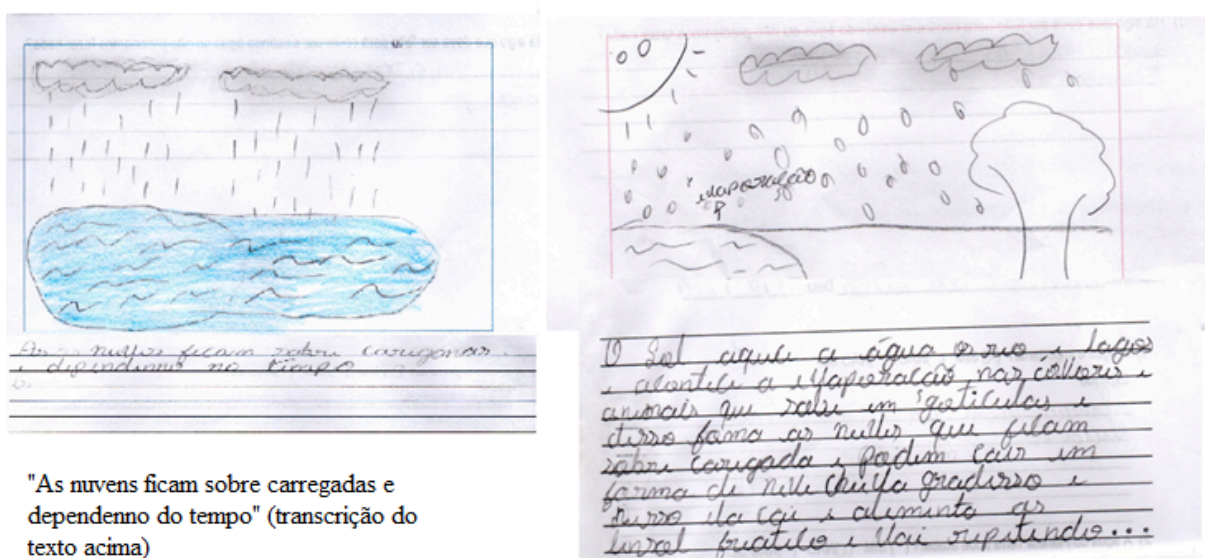 As nuvės ficam sobri carigadas
i dependenno no timpo
"As nuvens ficam sobre carregadas e
dependenno do tempo" (transcrição do
texto acima)
evaporação
O Sol aquli a água os rio i lagos
i aconteci a evaporação nas árvoris i
animais qui sobi im gotículas i
disso foma as nuves que ficam
sobri carigada i podim cair im
forma di nevi chuva gradisso i
disso ela cai i alimenta as
i vai ripitindo...